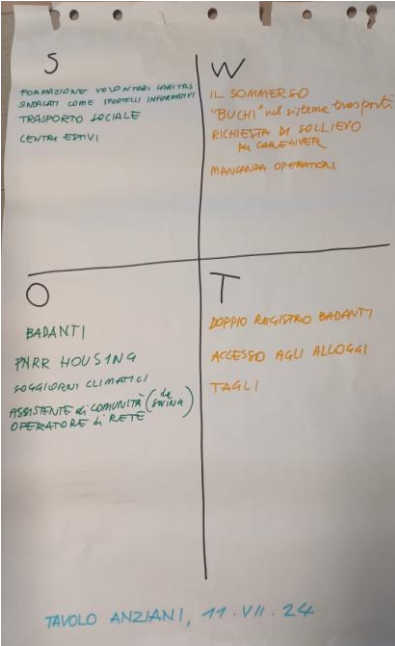 S
FORMAZIONE VOLONTARI CARITAS
SINDACATI COME SPORTELLI INFORMATIVI
TRASPORTO SOCIALE
CENTRI ESTIVI
W
IL SOMMERSO
"BUCHI" nel sistema trasporti
RICHIESTA DI SOLLIEVO
per CAREGIVER
MANCANZA OPERATORI
O
BADANTI
PNRR HOUSING
SOGGIORNI CLIMATICI
ASSISTENTE di COMUNITÀ (da
OPERATORE di RETE
T
DOPPIO REGISTRO BADANTI
ACCESSO AGLI ALLOGGI
TAGLI
TAVOLO ANZIANI, 11.VII.24